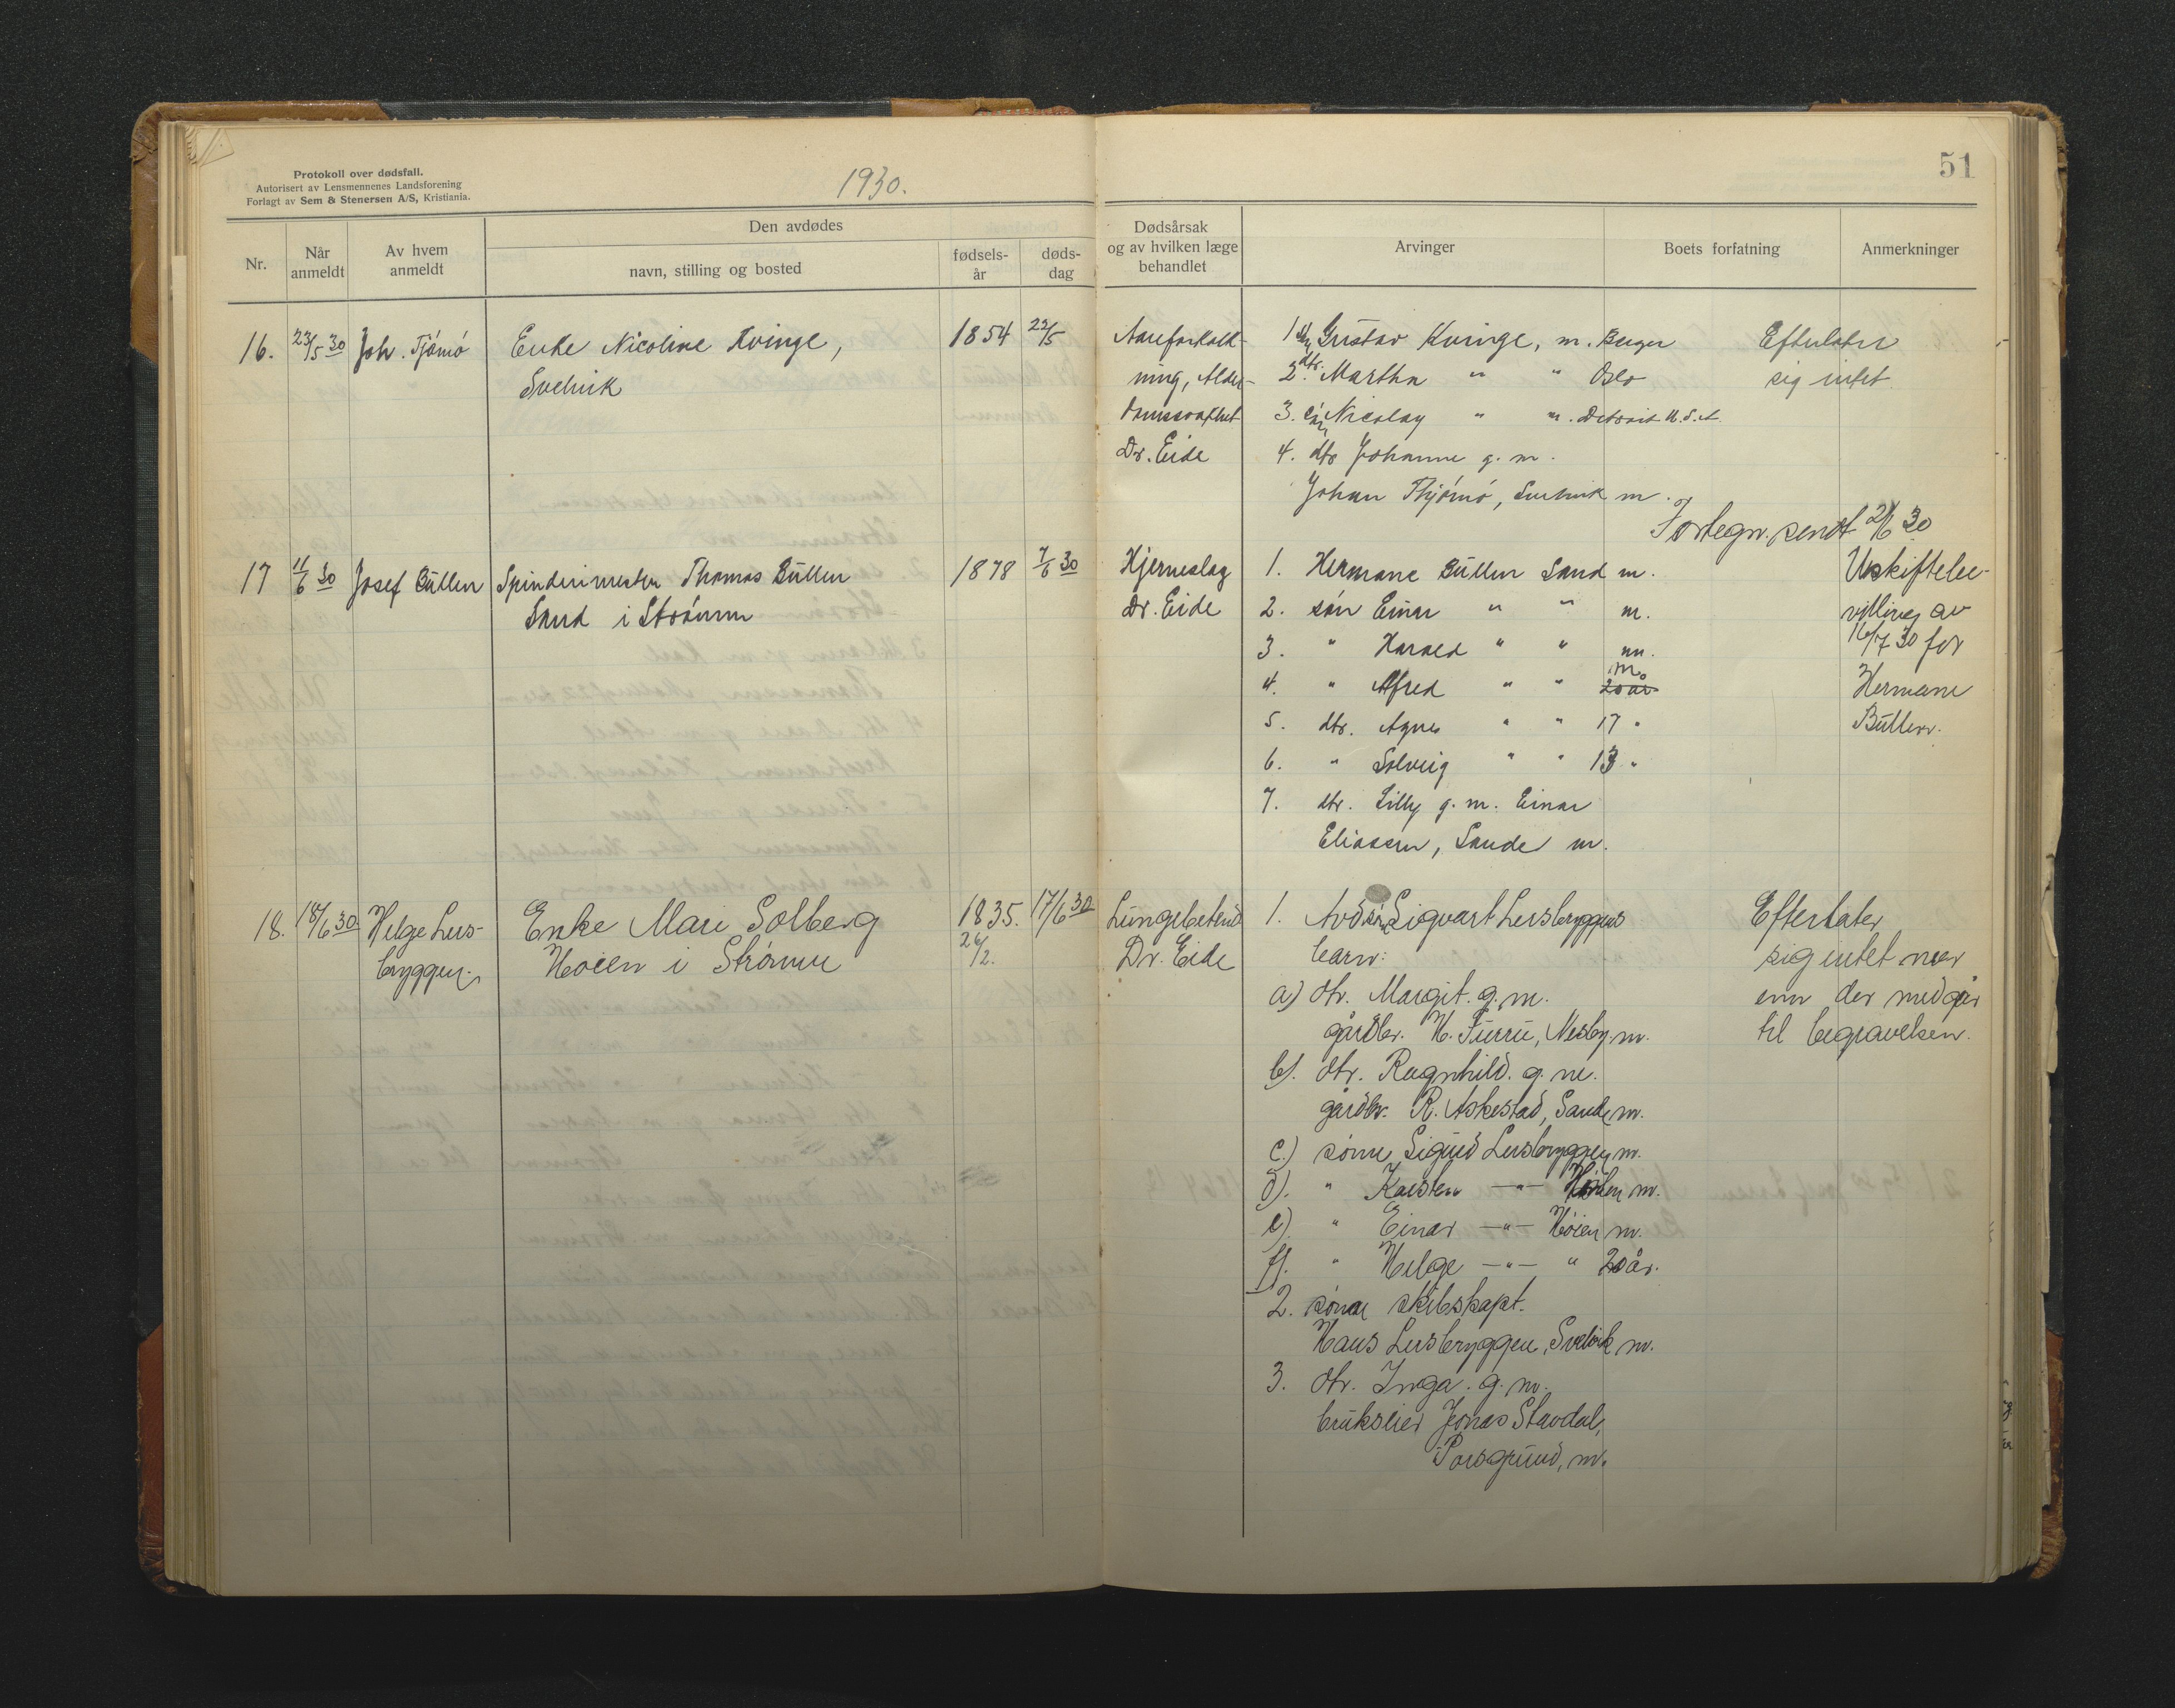 51
Protokoll over dødsfall.
Autorisert av Lensmennenes Landsforening
Forlagt av Sem & Stenersen A/S, Kristiania.
1930.
Nr.
Når anmeldt
Av hvem anmeldt
Den avdødes
navn, stilling og bosted
fødsels-år
døds-dag
Dødsårsak og av hvilken læge behandlet
Arvinger
Boets forfatning
Anmerkninger
16.
23/5 30
Joh. Tjömö
Enke Nicoline Kvinge,
Svelvik
1854
22/5
Aareforkalk-
ning, Alder-
domssvakhet
Dr. Eide
1. Gustav Kvinge, m. Berger
2. dtr. Martha " " Oslo
3. Nicolay " m. Detroit U.S.A
4. dtr Johanne g. m.
Johan Thjömö, Svelvik m.
Efterlater
sig intet
Fortegn. sendt 21/6 30
17
11/6 30
Josef Büllen
Spinderimester Thomas Büllen
Sand i Strömm
1878
7/6 30
Hjerneslag
Dr. Eide
1. Hermane Büllen Sand m.
2. sön Einar " " m.
3. " Harald " " m.
4. " Alfred " " 20 år m.
5. dtr. Agnes " " 17 "
6. " Solveig " " 13 "
7. dtr. Lilly g. m. Einar
Eliassen, Sande m.
Uskiftebe-
villing av
16/7 30 for
Hermane
Büllen.
18.
18/6 30
Helge Lers-
bryggen.
Enke Mari Solberg
Höien i Strömm
1835.
26/2.
17/6 30
Lungebetend
Dr. Eide
1. Avd. sön Sigvart Lersbryggens
barn:
a) dtr. Margit. g. m.
gårdbr. H. Furru, Nesby m.
b). dtr. Ragnhild. g. m.
gårdbr. R. Askestad, Sande m.
c.) sönn Sigurd Lersbryggen m.
d). " Karsten —"— m.
e) " Einar —"— Höien m.
f). " Helge —"— " 20 år.
2. sönn skibskapt.
Hans Lersbryggen, Svelvik m.
3. dtr. Inga. g. m.
brukseier Jonas Stavdal,
Porsgrund, m.
Efterlater
sig intet mer
enn der medgår
til begravelsen.